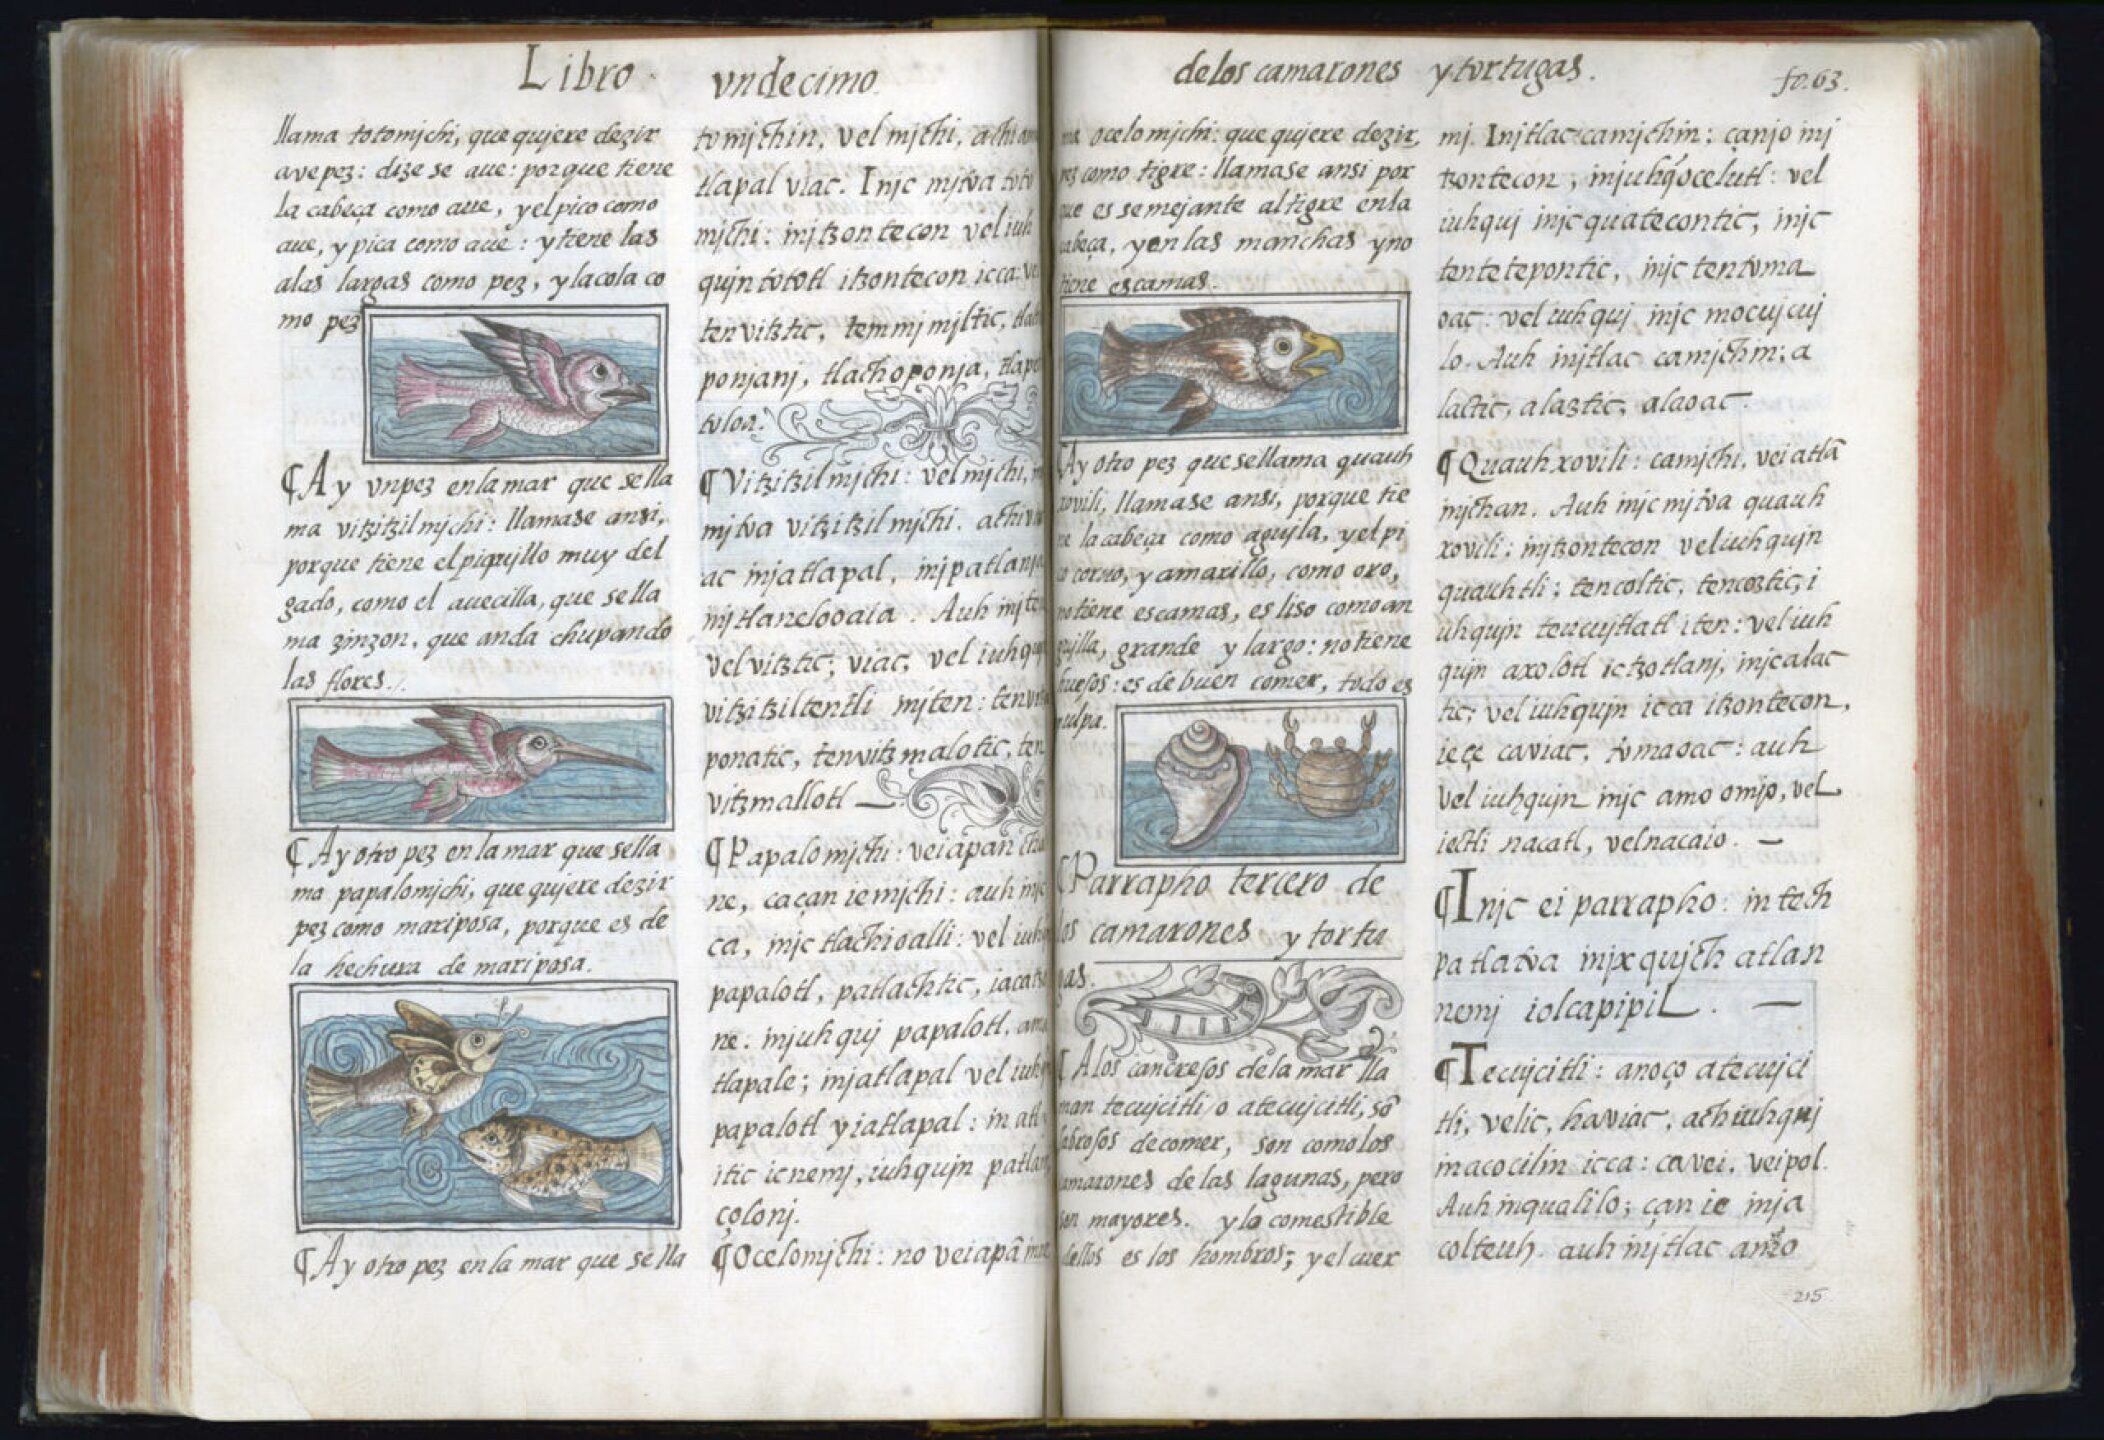 Libro vndecimo
llama totomjchi, que qujere dezir
ave pez: dize se aue: porque tiene
la cabeça como aue, y el pico como
aue, y pica como aue: y tiene las
alas largas como pez, y la cola co
mo pez
¶ Ay vn pez en la mar que se lla
ma vitzitzilmjchi: llamase ansi,
porque tiene el piqujllo muy del
gado, como el auecilla, que se lla
ma zinzon, que anda chupando
las flores.
¶ Ay otro pez en la mar que se lla
ma papalomjchi, que qujere dezir
pez como mariposa, porque es de
la hechura de mariposa.
¶ Ay otro pez en la mar que se lla
tomjchin, vel mjchi, achi
tlapal viac. Injc mjtva toto
mjchi: injtzontecon vel iuh
qujn tototl itzontecon icca: ve
tenvitztic, temmjmjltic,
ponjanj, tlachoponja,
toloa.
¶ Vitzitzilmjchi: vel mjchi,
mjtva vitzitzilmjchi. achi
ac injatlapal, injpatlanja
mjtlaneloaaia. Auh injten
vel vitztic, viac, vel iuhqujn
vitzitziltentli injten: tenvi
ponatic, tenvitzmalotic, ten
vitzmallotl —
¶ Papalomjchi: veiapan
ne, caçan ie mjchi: auh injc
ca, injc tlachioalli: vel iuh
papalotl, patlachtic,
ne: injuhquj papalotl,
tlapale; injatlapal vel iuh
papalotl yiatlapal: in atl
itic icnemj, iuhqujn patlan
çolonj.
¶ Ocelomjchi: no veiapã
de los camarones y tortugas. fo. 63.
ma ocelomjchi: que qujere dezir,
pez como tigre: llamase ansi por
que es semejante al tigre en la
cabeça, y en las manchas y no
tiene escamas.
¶ Ay otro pez que se llama quauh
xovili, llamase ansi, porque tie
ne la cabeça como agujla, y el pi
co corvo, y amarillo, como oro,
no tiene escamas, es liso como an
gujlla, grande y largo: no tiene
huesos: es de buen comer, todo es
pulpa.
¶ Parrapho tercero de
los camarones y tortu
gas.
¶ A los cancrejos de la mar lla
man tecujcitli o atecujcitli, sõ
sabrosos de comer, son como los
camarones de las lagunas, pero
son mayores. y lo comestible
dellos es los hombros; y el cuer
mj. Injtlac camjchin: çanjo inj
tzontecon, injuhq̃ ocelutl: vel
iuhquj injc quatecontic, injc
tentetepontic, injc tentoma
oac: vel iuhquj injc mocujcuj
lo. Auh injtlac camjchin: a
lactic, alaztic, alaoac.
¶ Quauhxovili: camjchi, vei atlã
mjchan. Auh injc mjtva quauh
xovili: injtzontecon vel iuhqujn
quauhtli; tencoltic, tencoztic, i
uhqujn teucujtlatl iten: vel iuh
qujn axolotl ic tzotlanj, injc alac
tic; vel iuhqujn icca itzontecon,
iece caviac, tomaoac: auh
vel iuhqujn injc amo omjo, vel
iectli nacatl, vel nacaio. —
¶ Injc ei parrapho: intech
patlatoa injxqujch atlan
nemj iolcapipil. —
¶ Tecujcitli: anoço atecujci
tli, velic, haviac, ach iuhquj
inacocilin icca: ca vei, veipol.
Auh inqualilo; çan ie inja
colteuh. auh injtlac amo
215